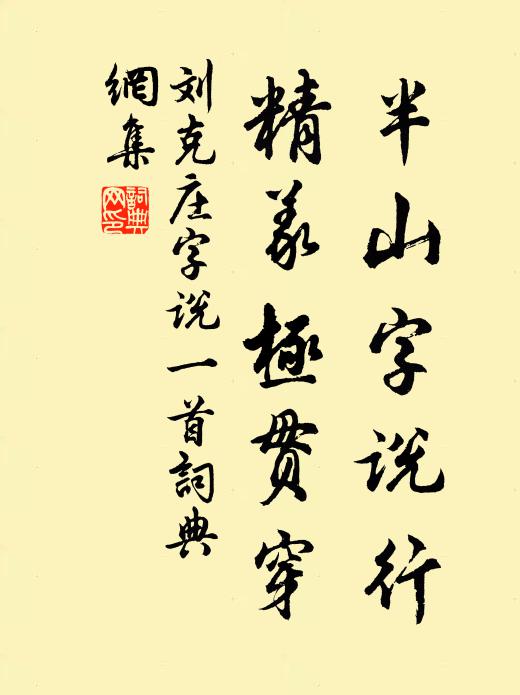 半山字说行
精义極贯穿
刘克庄字说一首詞典
網集
詞典網印